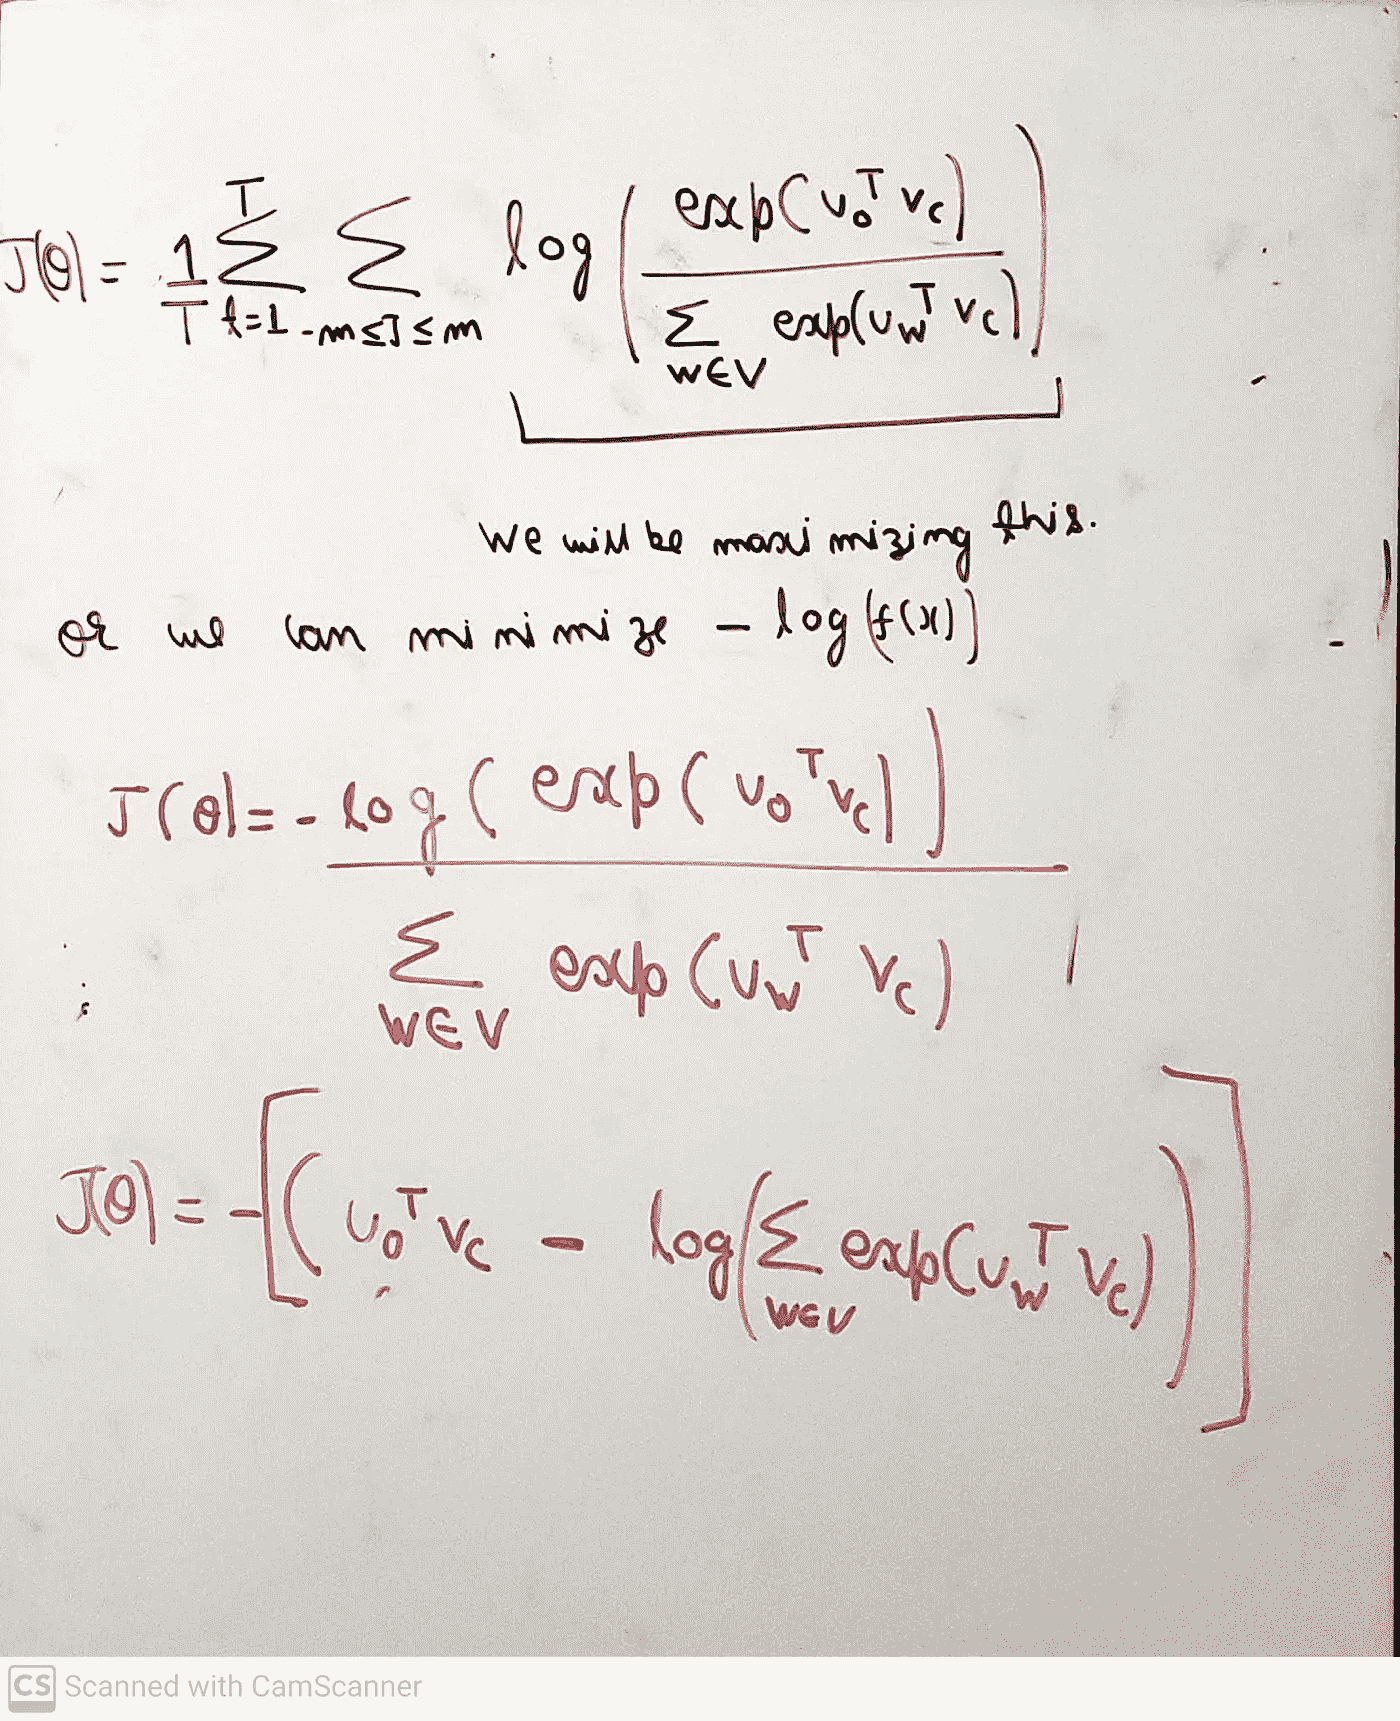 J(θ) = 1/T T∑t=1 ∑-m≤J≤m log ( exp(uoᵀ vc) / ∑w∈V exp(uwᵀ vc) )
we will be maximizing this.
or we can minimize - log(f(x))
J(θ) = - log ( exp ( uoᵀ vc ) )
∑ exp (uwᵀ vc)
w∈V
J(θ) = -[( uoᵀ vc - log(∑w∈V exp(uwᵀ vc) ) ]
CS Scanned with CamScanner